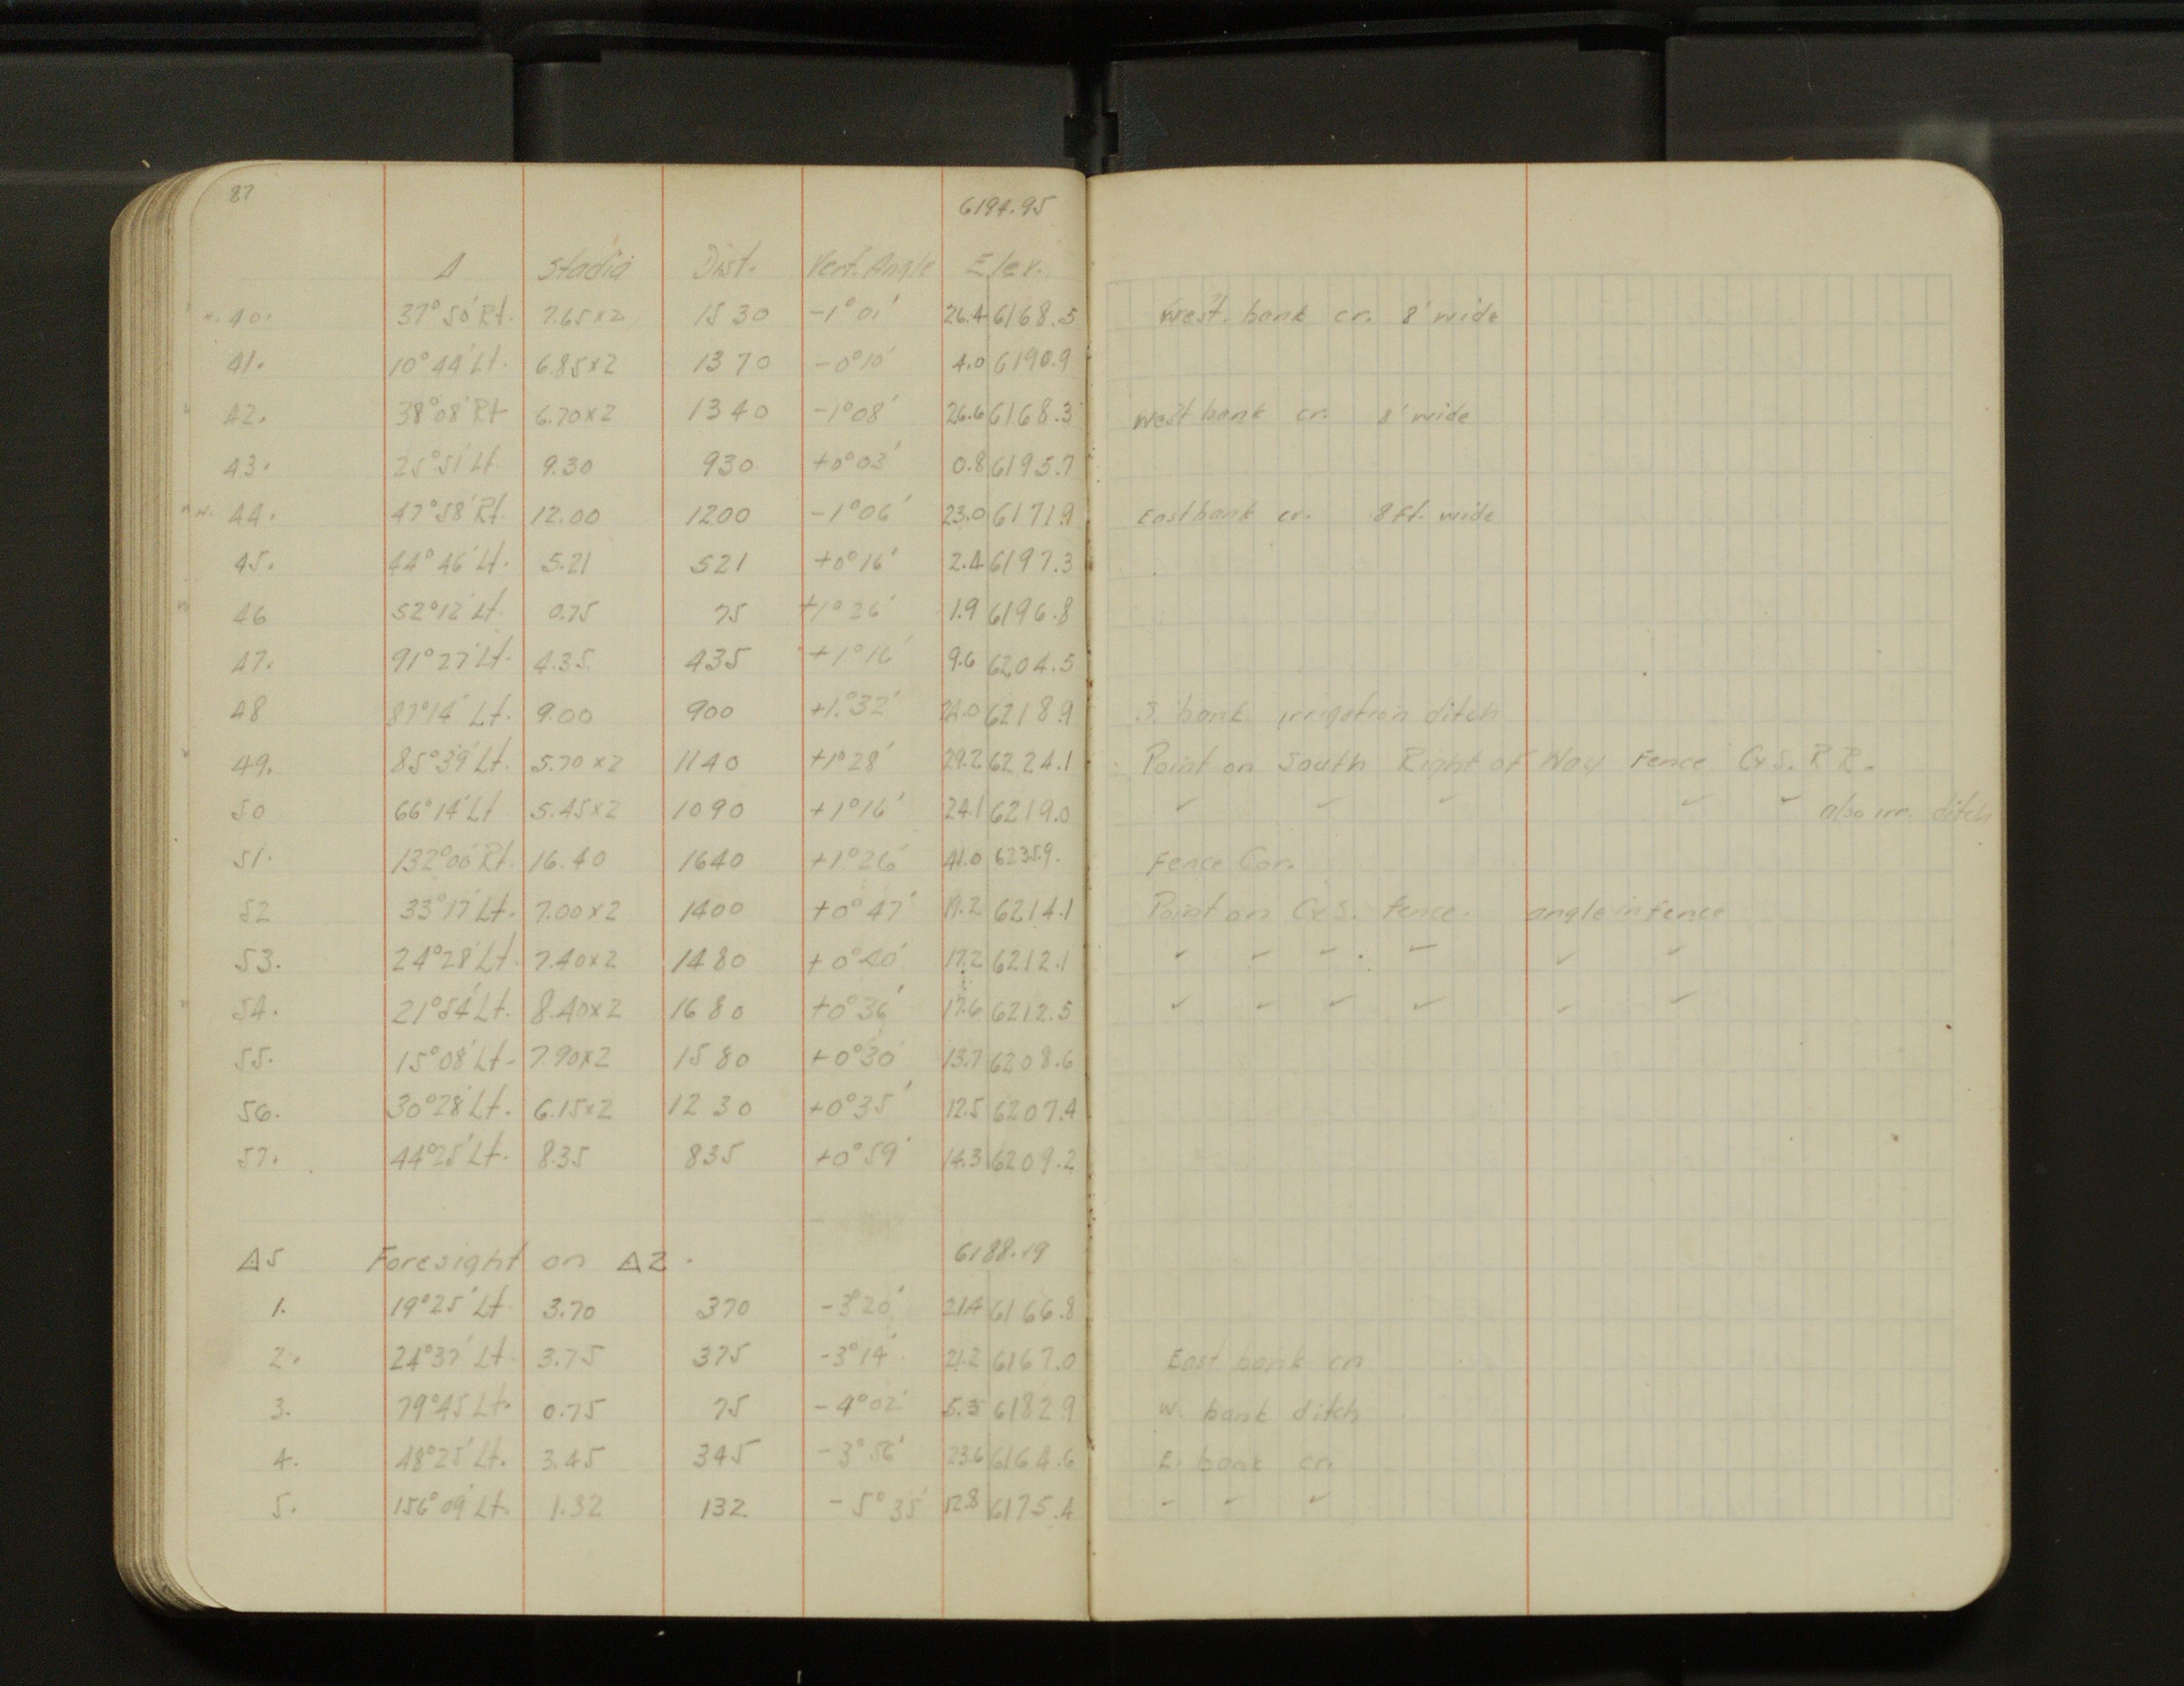 87
6194.95
Δ Stadia Dist. Vert. Angle Elev.
40. 37°50' Rt. 7.65x2 1530 -1°01' 26.4 6168.5 West. bank cr. 8' wide
41. 10°44' Lt. 6.85x2 1370 -0°10' 4.0 6190.9
42. 38°08' Rt 6.70x2 1340 -1°08' 26.6 6168.3 West bank cr. 8' wide
43. 25°51' Lt. 9.30 930 +0°03' 0.8 6195.7
44. 47°58' Rt. 12.00 1200 -1°06' 23.0 6171.9 East bank cr. 8 Ft. wide
45. 44°46' Lt. 5.21 521 +0°16' 2.4 6197.3
46 52°12' Lt. 0.75 75 +1°26' 1.9 6196.8
47. 91°27' Lt. 4.35 435 +1°16' 9.6 6204.5
48 87°14' Lt. 9.00 900 +1°32' 24.0 6218.9 S. bank irrigation ditch
49. 85°39' Lt. 5.70x2 1140 +1°28' 29.2 6224.1 Point on South Right of Way Fence C&S. R R.
50 66°14' Lt 5.45x2 1090 +1°16' 24.1 6219.0 ✓ ✓ ✓ ✓ ✓ also irr. ditch
51. 132°00' Rt. 16.40 1640 +1°26' 41.0 6235.9. Fence Cor.
52 33°17' Lt. 7.00x2 1400 +0°47' 19.2 6214.1 Point on C&S. Fence. angle in fence
53. 24°28' Lt. 7.40x2 1480 +0°40' 17.2 6212.1 ✓ ✓ ✓ ✓ ✓ ✓
54. 21°54' Lt. 8.40x2 1680 +0°36' 17.6 6212.5 ✓ ✓ ✓ ✓ ✓ ✓
55. 15°08' Lt. 7.90x2 1580 +0°30' 13.7 6208.6
56. 30°28' Lt. 6.15x2 1230 +0°35' 12.5 6207.4
57. 44°25' Lt. 8.35 835 +0°59' 14.3 6209.2
Δ5 Foresight on Δ2. 6188.19
1. 19°25' Lt. 3.70 370 -3°20' 21.4 6166.8
2. 24°37' Lt. 3.75 375 -3°14' 21.2 6167.0 East bank cr.
3. 79°45' Lt. 0.75 75 -4°02' 5.3 6182.9 W. bank ditch
4. 48°25' Lt. 3.45 345 -3°56' 23.6 6164.6 E. bank cr.
5. 156°09' Lt. 1.32 132 -5°35' 12.8 6175.4 ✓ ✓ ✓